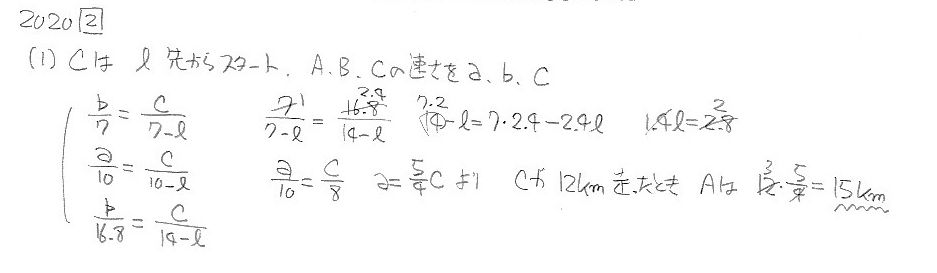 2020 [2]
(1) Cは l 先からスタート、A、B、Cの速さをa、b、c
b/7 = c/(7-l)  7/(7-l) = 16.8/(14-l)  1 2.4  7·2 14-l=7·2.4-2.4l  1.4l=2.8 2
a/10 = c/(10-l)  a/10 = c/8  a=5/4c より  Cが12km走ったとき Aは 12·5/4=15km 3
b/16.8 = c/(14-l)